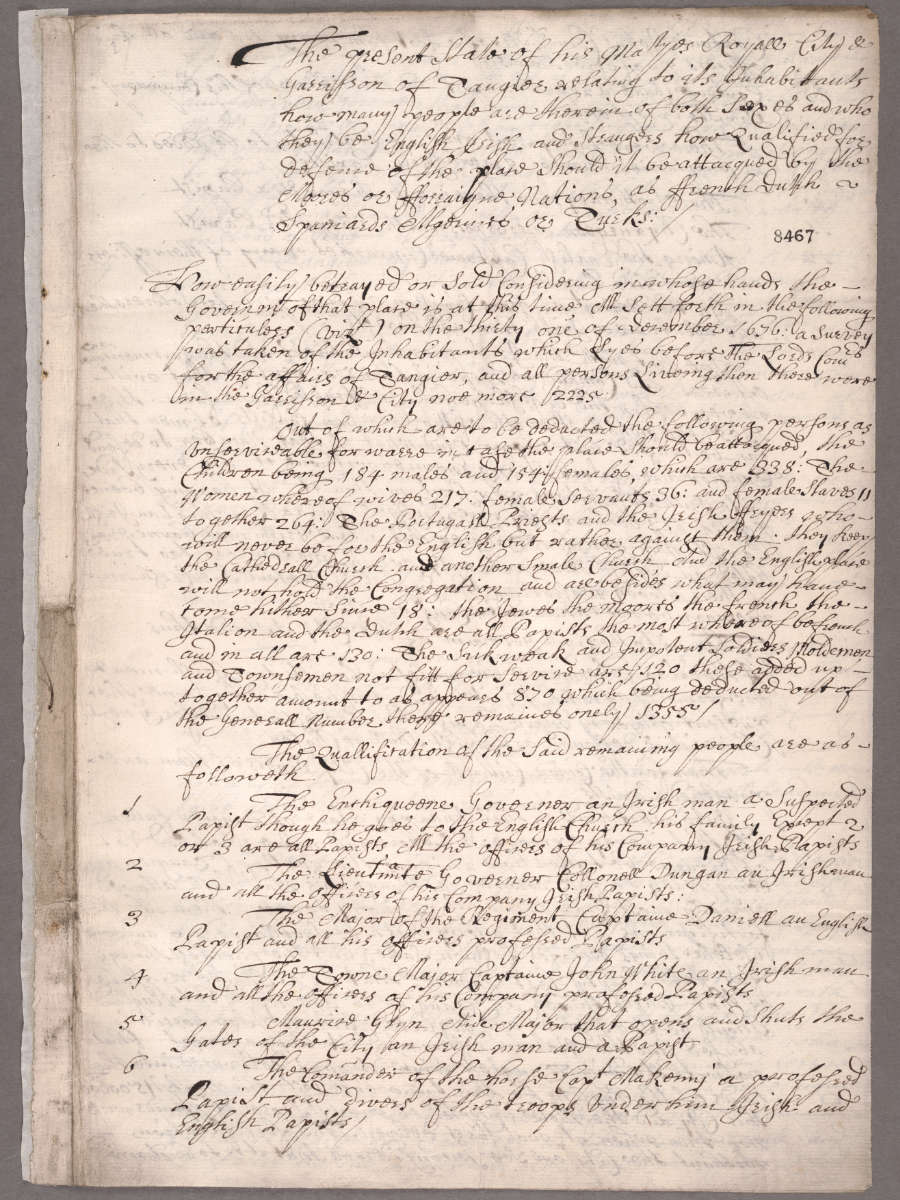 The present State of his Ma[tyes] Royall City &
Garrisson of Tangier relating to its Inhabitants
how many people are therein of both Sexes and who
they be English Irish and Strangers how Qualified for
defence of the place should it be attacqued by the
Moores or fforraigne Nations, as ffrench Dutch
Spaniards Algerines or Turks:/
8467
How easily betrayed or Sold Considering in whose hands the
Governm[t] of that place is at this time All Sett forth in the following
perticulers (vizt) on the thirty one of December 1676 a Survey
was taken of the Inhabitants which Lyes before The Lords Com[rs]
for the affairs of Tangier, and all persons Liveing then there were
in the Garrisson & City noe more 2225
Out of which are to be deducted the following persons as
Unserviceable for warre in case the place Should be attacqued, the
Children being 184 males and 154 females, which are 338: The
Women whereof wives 217: female Servants 36: and female Slaves 11
together 264: The Portugall Priests and the Irish ffryers who
will never be for the English but rather against them. they keep
the Cathedrall Church and another Smale Church And the English place
will not hold the Congregation and are besides what may have
come hither Since 18: the Jewes the moores the french the
Italion and the Dutch are all Papists the most whereof be french
and in all are 130: The Sick weak and Impotent Soldiers olde men
and Townsemen not fitt for Service are 120 these added up
together amount to as appears 870 which being deducted out of
the Generall Number there remaines onely 1355/
The Quallification of the Said remaining people are as
followeth
1 The Enchiqueene Governer an Irish man a Suspected
Papist though he goes to the English Church his family Except 2
or 3 are all Papists All the officers of his Company Irish Papists
2 The Lieutin[a]te Governer Collonell Dungan an Irishman
and all the Officers of his Company Irish Papists:
3 The Major of the Regiment Captaine Daniell an English
Papist and all his officers professed Papists
4 The Towne Major Captaine John White an Irish man
and all the officers of his Company professed Papists
5 Maurice Glyn Aide Major that opens and Shuts the
Gates of the City an Irish man and a Papist
6 The Comander of the horse Capt Makenny a professed
Papist and divers of the troops Under him Irish and
English Papists/